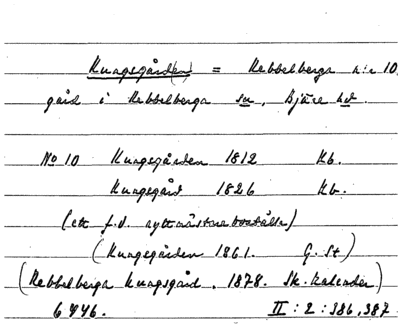 Knagsgård(en) = Rebbelberga n:r 10
gård i Rebbelberga sn, Bjäre hd.
No 10 Knagsgården 1812 Kb.
Knagsgård 1826 Kb.
(ett f.d. ryttmästareboställe)
(Knagsgården 1861. G. St)
(Rebbelberga Knagsgård. 1878. Sk. Kalender)
6446. II:2:386,387